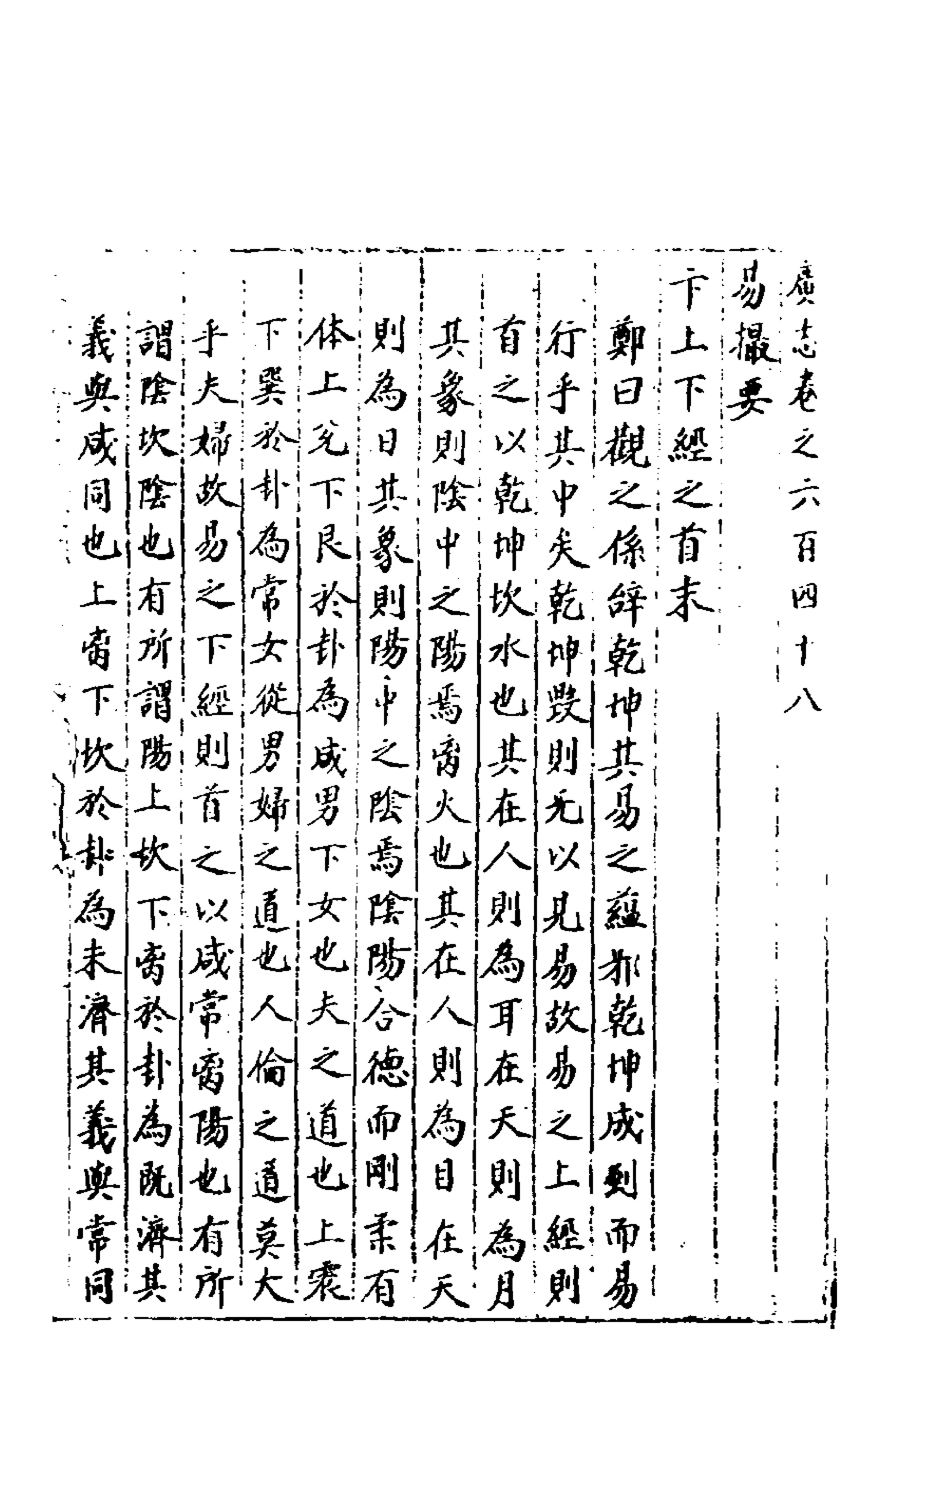 廣志卷之六百四十八
易撮要
卞上下經之首末
鄭曰觀之係辞乾坤其易之蘊邪乾坤成列而易
行乎其中矣乾坤毀則无以見易故易之上經則
首之以乾坤坎水也其在人則為耳在天則為月
其象則陰中之陽焉离火也其在人則為目在天
則為日其象則陽中之陰焉陰陽合德而剛柔有
体上兊下艮於卦為咸男下女也夫之道也上震
下巽於卦為常女從男婦之道也人倫之道莫大
乎夫婦故易之下經則首之以咸常离陽也有所
謂陰坎陰也有所謂陽上坎下离於卦為既濟其
義與咸同也上离下坎於卦為未濟其義與常同